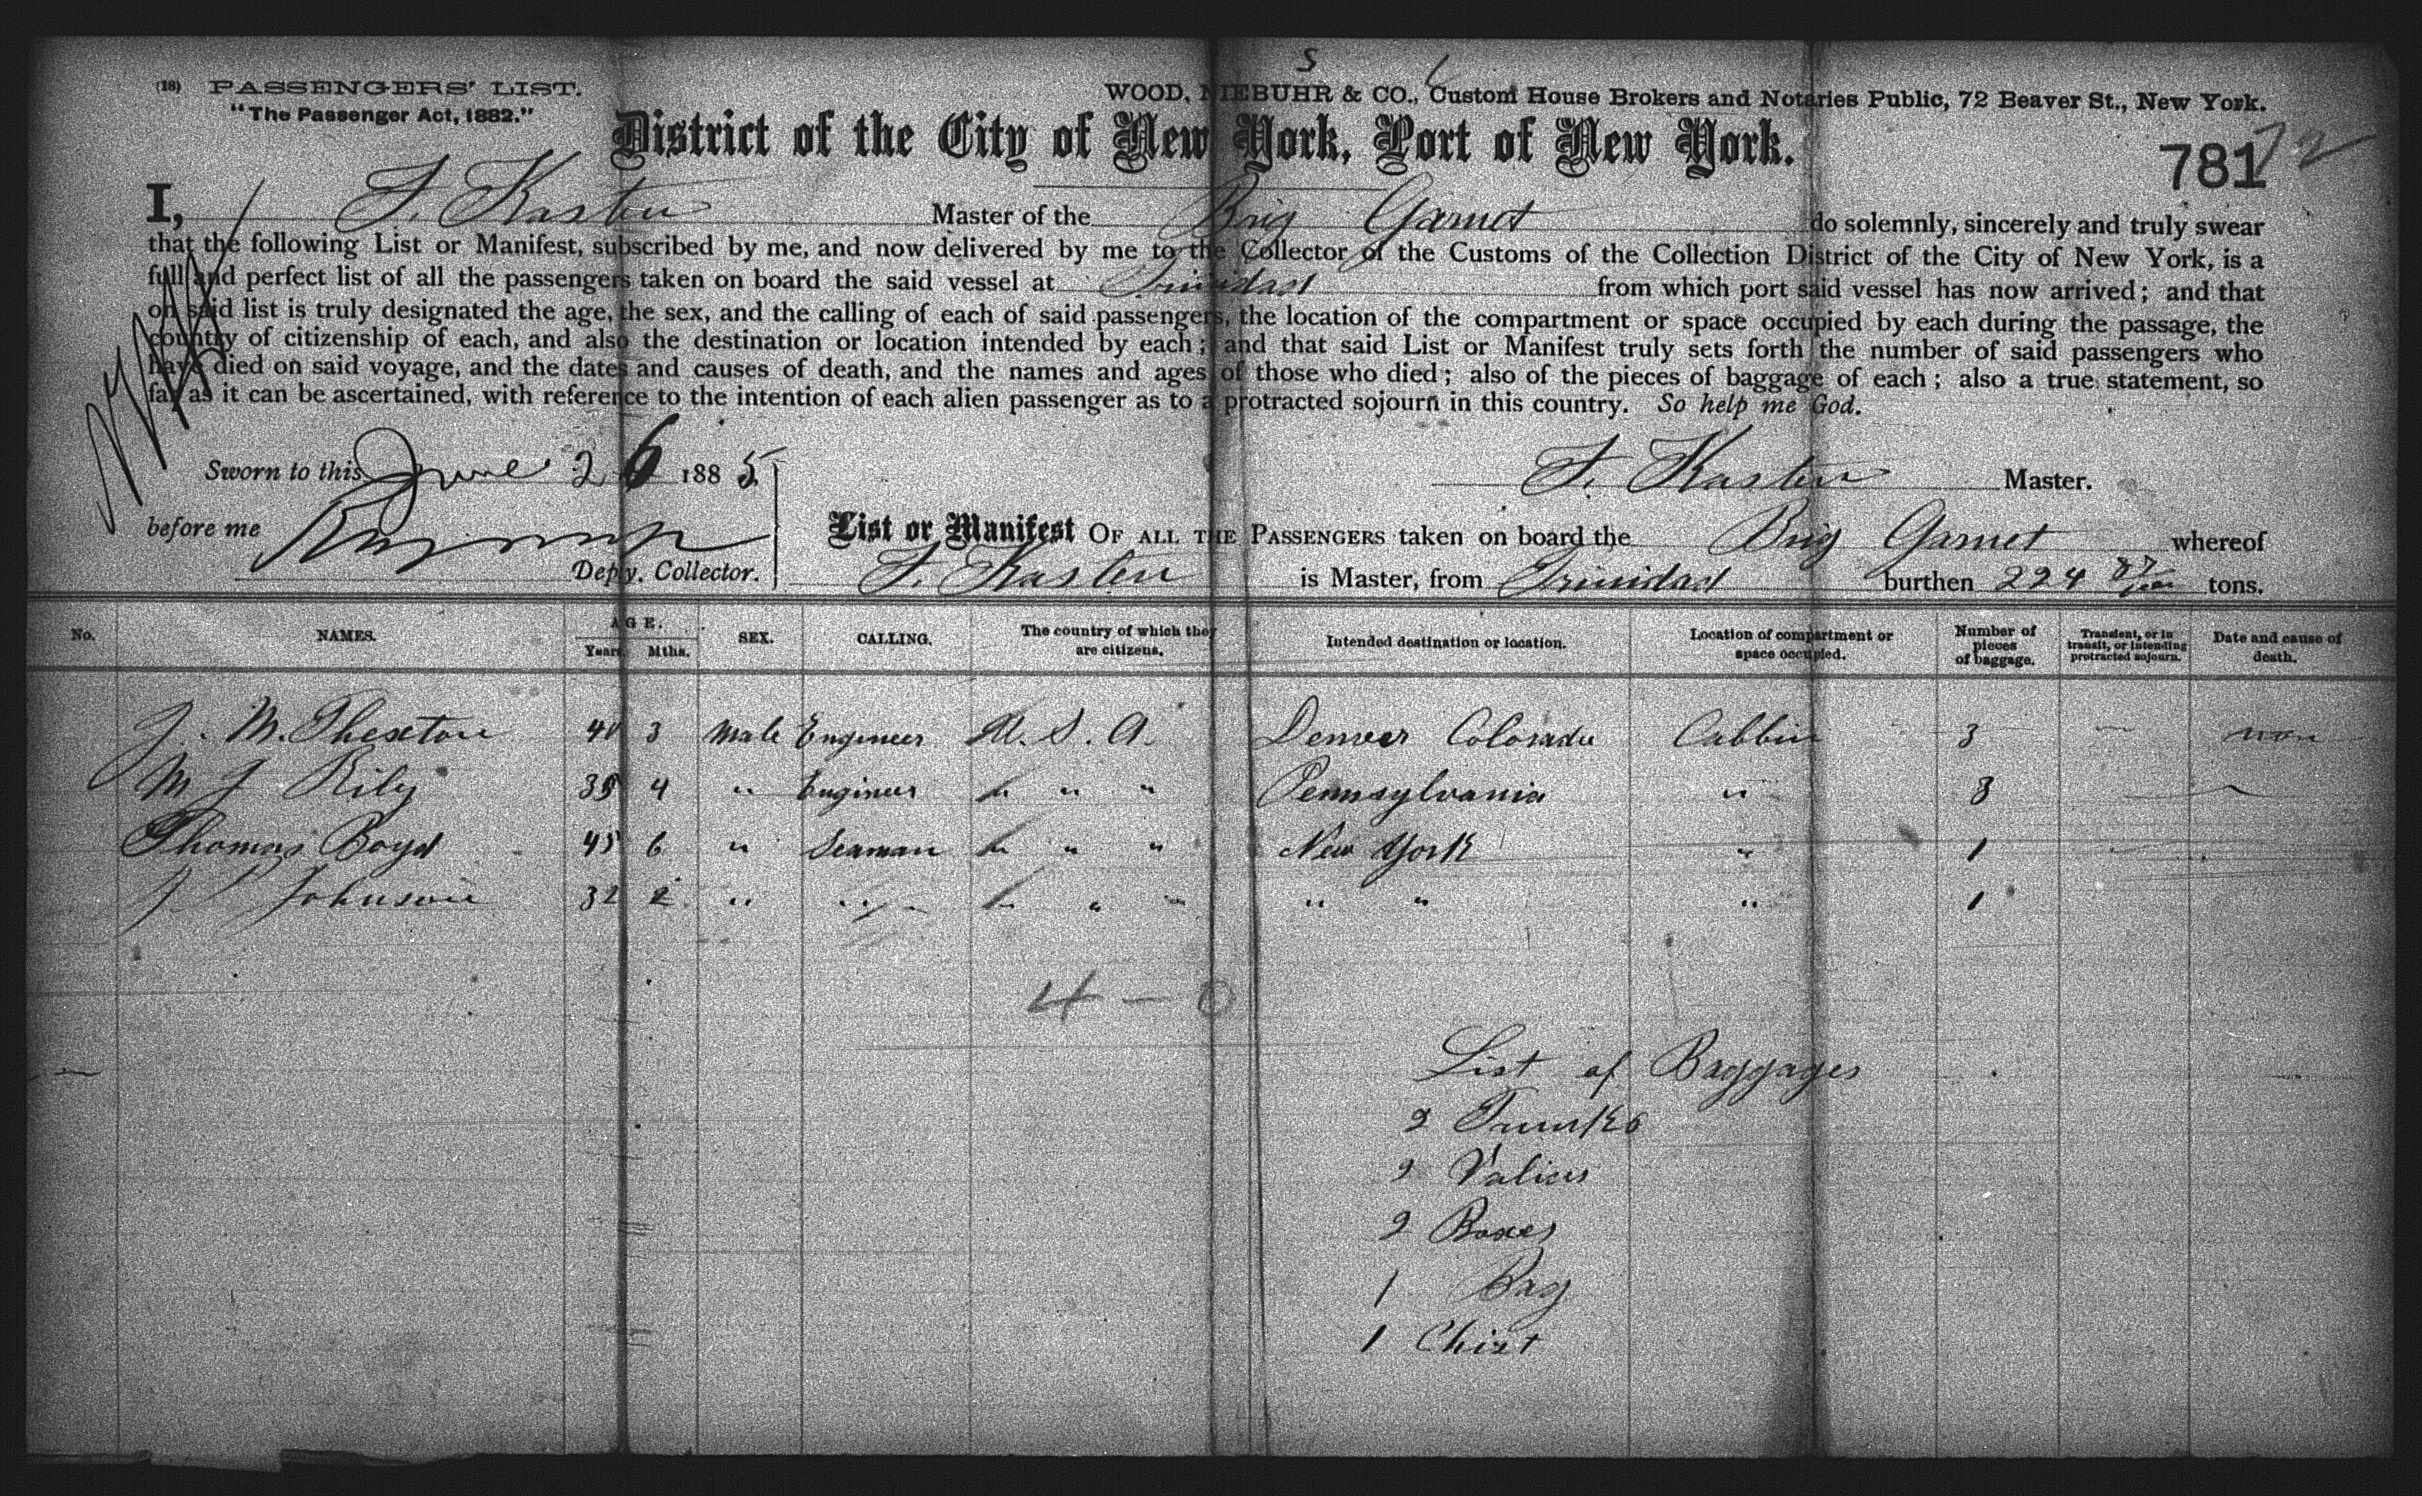 (18) PASSENGERS' LIST.
"The Passenger Act, 1882."
S
WOOD, NIEBUHR & CO., Custom House Brokers and Notaries Public, 72 Beaver St., New York.
District of the City of New York, Port of New York.
781
72
I, F. Kasten Master of the Brig Garnet do solemnly, sincerely and truly swear
that the following List or Manifest, subscribed by me, and now delivered by me to the Collector of the Customs of the Collection District of the City of New York, is a
full and perfect list of all the passengers taken on board the said vessel at Trinidad from which port said vessel has now arrived; and that
on said list is truly designated the age, the sex, and the calling of each of said passengers, the location of the compartment or space occupied by each during the passage, the
country of citizenship of each, and also the destination or location intended by each; and that said List or Manifest truly sets forth the number of said passengers who
have died on said voyage, and the dates and causes of death, and the names and ages of those who died; also of the pieces of baggage of each; also a true statement, so
far as it can be ascertained, with reference to the intention of each alien passenger as to a protracted sojourn in this country. So help me God.
Sworn to this June 26 1885
F. Kasten Master.
before me
Depty. Collector.
List or Manifest OF ALL THE PASSENGERS taken on board the Brig Garnet whereof
F. Kasten is Master, from Trinidad burthen 224 87/100 tons.
No. NAMES. AGE. Years. Mths. SEX. CALLING. The country of which they are citizens. Intended destination or location. Location of compartment or space occupied. Number of pieces of baggage. Transient, or in transit, or intending protracted sojourn. Date and cause of death.
J. M. Thexton 40 3 Male Engineer U. S. A. Denver Colorado Cabbin 3 non
M J Rily 35 4 " Engineer " " " Pennsylvania " 3
Thomas Boyd 45 6 " Seaman " " " New York " 1
J Johnson 32 2 " " " " " " " " 1
4 - 0
List of Baggages
2 Trunks
2 Valices
2 Boxes
1 Bag
1 Chist